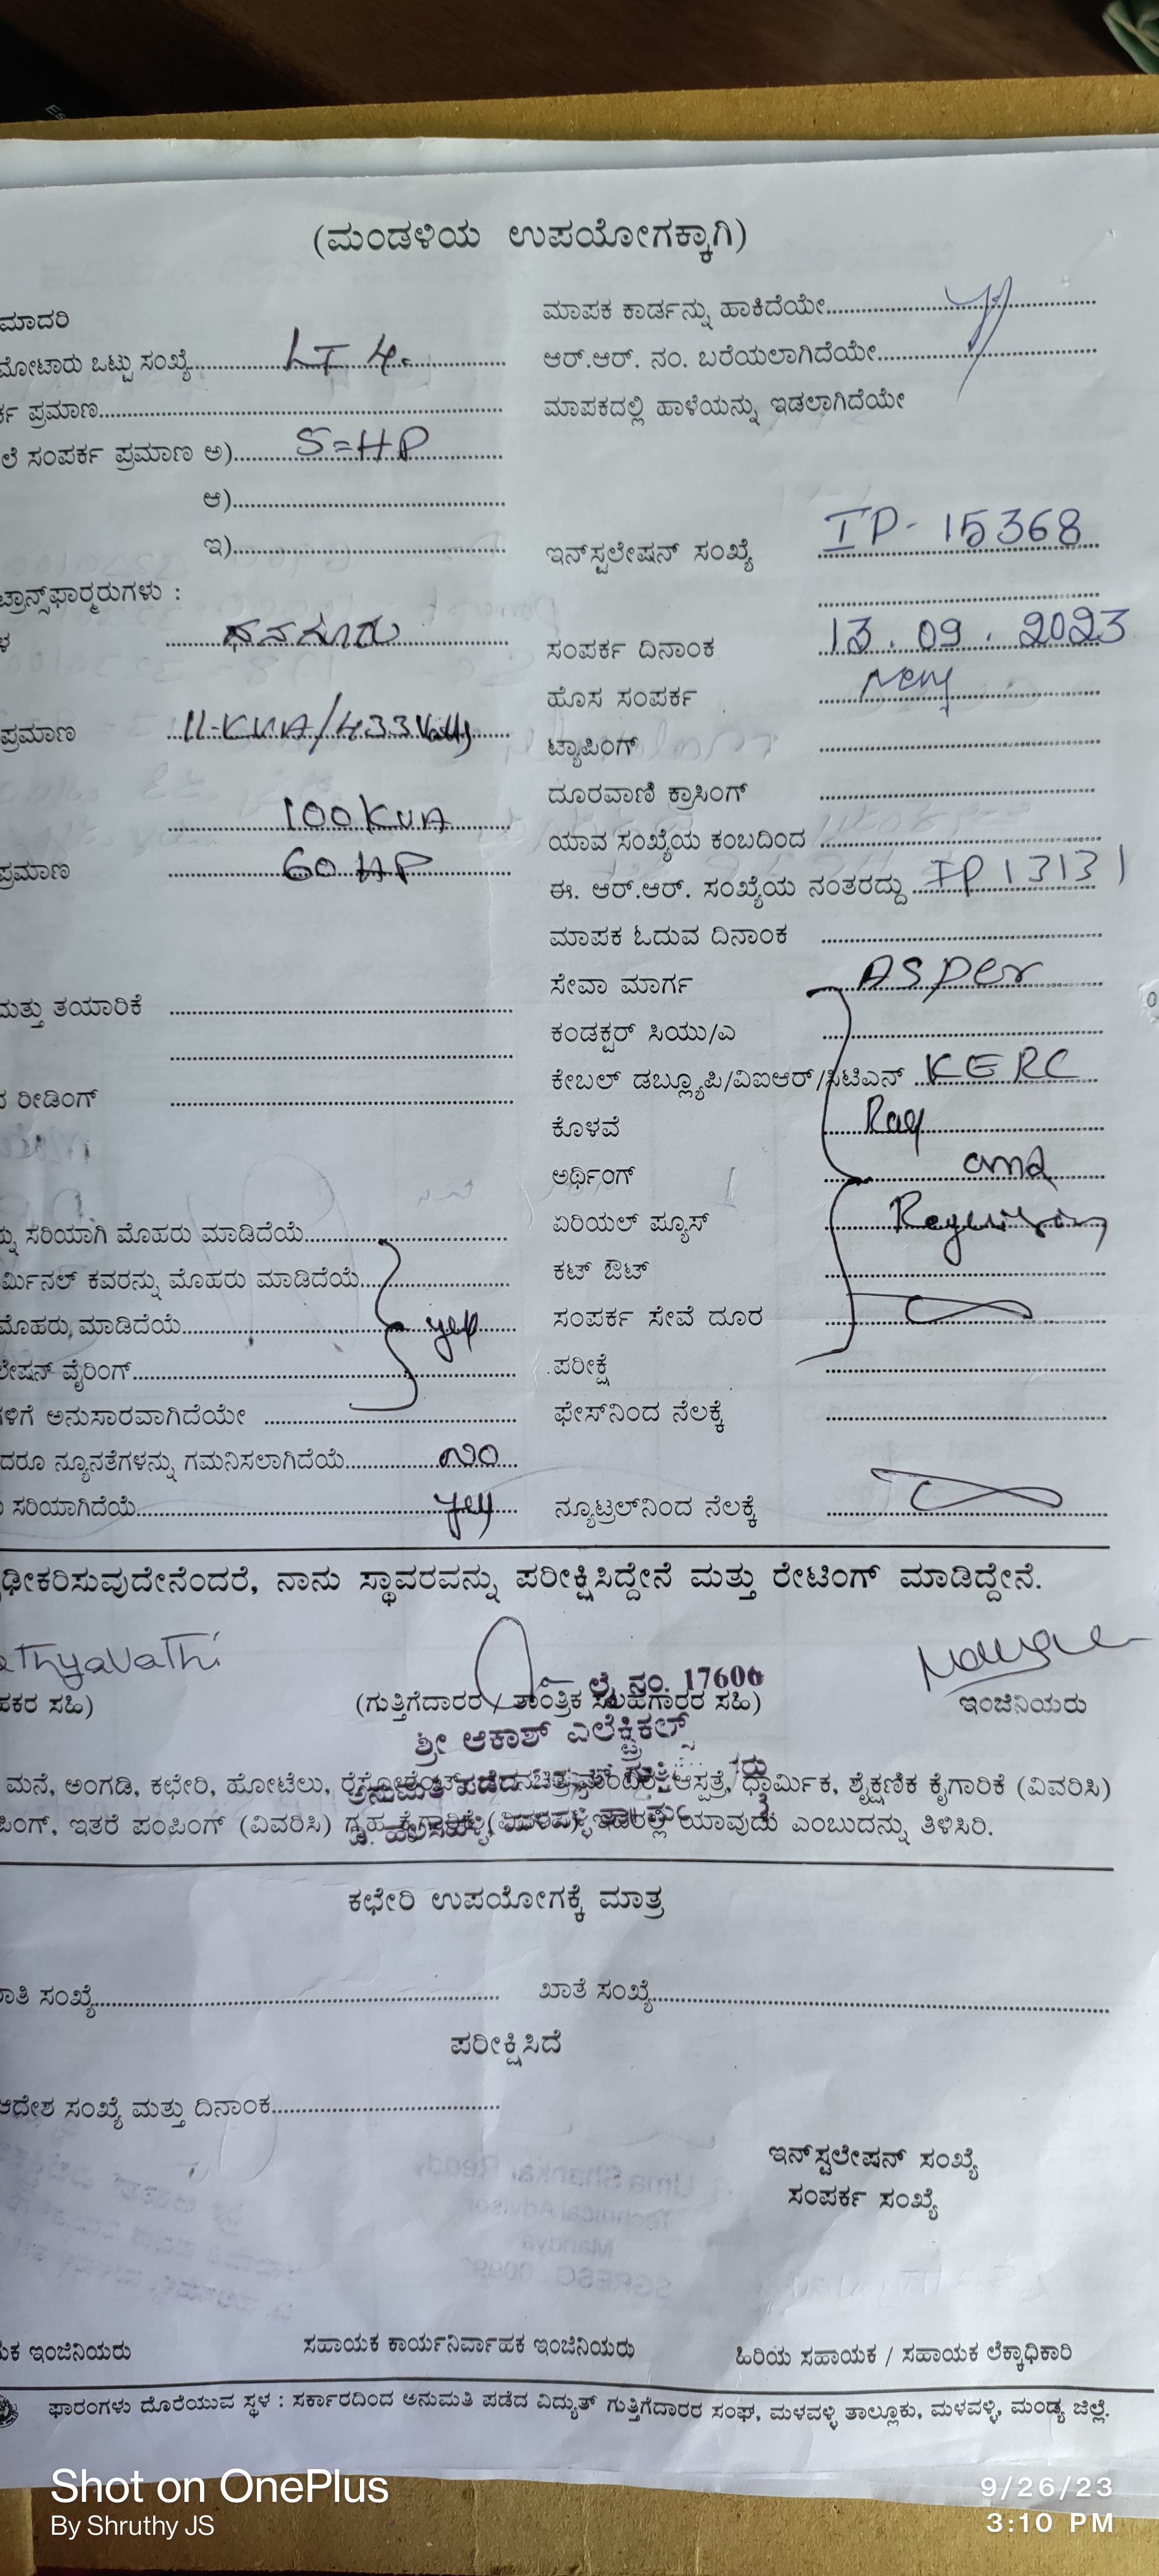 (ಮಂಡಳಿಯ ಉಪಯೋಗಕ್ಕಾಗಿ)
ಮಾದರಿ
ಮೋಟಾರು ಒಟ್ಟು ಸಂಖ್ಯೆ LT 4.
ರ್ಕ ಪ್ರಮಾಣ
ಲೆ ಸಂಪರ್ಕ ಪ್ರಮಾಣ ಅ) 5=HP
ಆ)
ಇ)
ಟ್ರಾನ್ಸ್‌ಫಾರ್ಮರುಗಳು :
ಳ
ಪ್ರಮಾಣ 11-KVA/433
100 KVA
ಪ್ರಮಾಣ 60 HP
ಮತ್ತು ತಯಾರಿಕೆ
ರೀಡಿಂಗ್
ಸರಿಯಾಗಿ ಮೊಹರು ಮಾಡಿದೆಯೆ
ರ್ಮಿನಲ್ ಕವರನ್ನು ಮೊಹರು ಮಾಡಿದೆಯೆ
ಮೊಹರು ಮಾಡಿದೆಯೆ yes
ಲೇಷನ್ ವೈರಿಂಗ್
ಗಳಿಗೆ ಅನುಸಾರವಾಗಿದೆಯೇ
ದರೂ ನ್ಯೂನತೆಗಳನ್ನು ಗಮನಿಸಲಾಗಿದೆಯೆ NO
ಸರಿಯಾಗಿದೆಯೆ yes
ಮಾಪಕ ಕಾರ್ಡನ್ನು ಹಾಕಿದೆಯೇ
ಆರ್.ಆರ್. ನಂ. ಬರೆಯಲಾಗಿದೆಯೇ
ಮಾಪಕದಲ್ಲಿ ಹಾಳೆಯನ್ನು ಇಡಲಾಗಿದೆಯೇ
ಇನ್‌ಸ್ಟಲೇಷನ್ ಸಂಖ್ಯೆ IP-15368
ಸಂಪರ್ಕ ದಿನಾಂಕ 13.09.2023
ಹೊಸ ಸಂಪರ್ಕ New
ಟ್ಯಾಪಿಂಗ್
ದೂರವಾಣಿ ಕ್ರಾಸಿಂಗ್
ಯಾವ ಸಂಖ್ಯೆಯ ಕಂಬದಿಂದ
ಈ. ಆರ್.ಆರ್. ಸಂಖ್ಯೆಯ ನಂತರದ್ದು IP 13131
ಮಾಪಕ ಓದುವ ದಿನಾಂಕ
ಸೇವಾ ಮಾರ್ಗ ASPer
ಕಂಡಕ್ಟರ್ ಸಿಯು/ಎ
ಕೇಬಲ್ ಡಬ್ಲ್ಯೂಪಿ/ವಿಐಆರ್/ಸಿಟಿಎನ್ KERC
ಕೊಳವೆ
ಅರ್ಥಿಂಗ್ and
ಏರಿಯಲ್ ಪ್ಯೂಸ್
ಕಟ್ ಔಟ್
ಸಂಪರ್ಕ ಸೇವೆ ದೂರ
ಪರೀಕ್ಷೆ
ಫೇಸ್‌ನಿಂದ ನೆಲಕ್ಕೆ
ನ್ಯೂಟ್ರಲ್‌ನಿಂದ ನೆಲಕ್ಕೆ
ಢೀಕರಿಸುವುದೇನೆಂದರೆ, ನಾನು ಸ್ಥಾವರವನ್ನು ಪರೀಕ್ಷಿಸಿದ್ದೇನೆ ಮತ್ತು ರೇಟಿಂಗ್ ಮಾಡಿದ್ದೇನೆ.
athyavathi
ಲೈ. ನಂ. 17606
ಹಕರ ಸಹಿ) (ಗುತ್ತಿಗೆದಾರರ / ತಾಂತ್ರಿಕ ಸಲಹೆಗಾರರ ಸಹಿ) ಇಂಜಿನಿಯರು
ಶ್ರೀ ಆಕಾಶ್ ಎಲೆಕ್ಟ್ರಿಕಲ್ಸ್
ಮನೆ, ಅಂಗಡಿ, ಕಛೇರಿ, ಹೋಟೆಲು, ಆಸ್ಪತ್ರೆ, ಧಾರ್ಮಿಕ, ಶೈಕ್ಷಣಿಕ ಕೈಗಾರಿಕೆ (ವಿವರಿಸಿ)
ಪಿಂಗ್, ಇತರೆ ಪಂಪಿಂಗ್ (ವಿವರಿಸಿ) ಗೃಹ ಕೈಗಾರಿಕೆ (ವಿವರಿಸಿ) ಇವುಗಳಲ್ಲಿ ಯಾವುದು ಎಂಬುದನ್ನು ತಿಳಿಸಿರಿ.
ಕಛೇರಿ ಉಪಯೋಗಕ್ಕೆ ಮಾತ್ರ
ಸಂಖ್ಯೆ ಖಾತೆ ಸಂಖ್ಯೆ
ಪರೀಕ್ಷಿಸಿದೆ
ಆದೇಶ ಸಂಖ್ಯೆ ಮತ್ತು ದಿನಾಂಕ
ಇನ್‌ಸ್ಟಲೇಷನ್ ಸಂಖ್ಯೆ
ಸಂಪರ್ಕ ಸಂಖ್ಯೆ
ಯಕ ಇಂಜಿನಿಯರು ಸಹಾಯಕ ಕಾರ್ಯನಿರ್ವಾಹಕ ಇಂಜಿನಿಯರು ಹಿರಿಯ ಸಹಾಯಕ / ಸಹಾಯಕ ಲೆಕ್ಕಾಧಿಕಾರಿ
ಫಾರಂಗಳು ದೊರೆಯುವ ಸ್ಥಳ : ಸರ್ಕಾರದಿಂದ ಅನುಮತಿ ಪಡೆದ ವಿದ್ಯುತ್ ಗುತ್ತಿಗೆದಾರರ ಸಂಘ, ಮಳವಳ್ಳಿ ತಾಲ್ಲೂಕು, ಮಳವಳ್ಳಿ, ಮಂಡ್ಯ ಜಿಲ್ಲೆ.
Shot on OnePlus
By Shruthy JS
9/26/23
3:10 PM